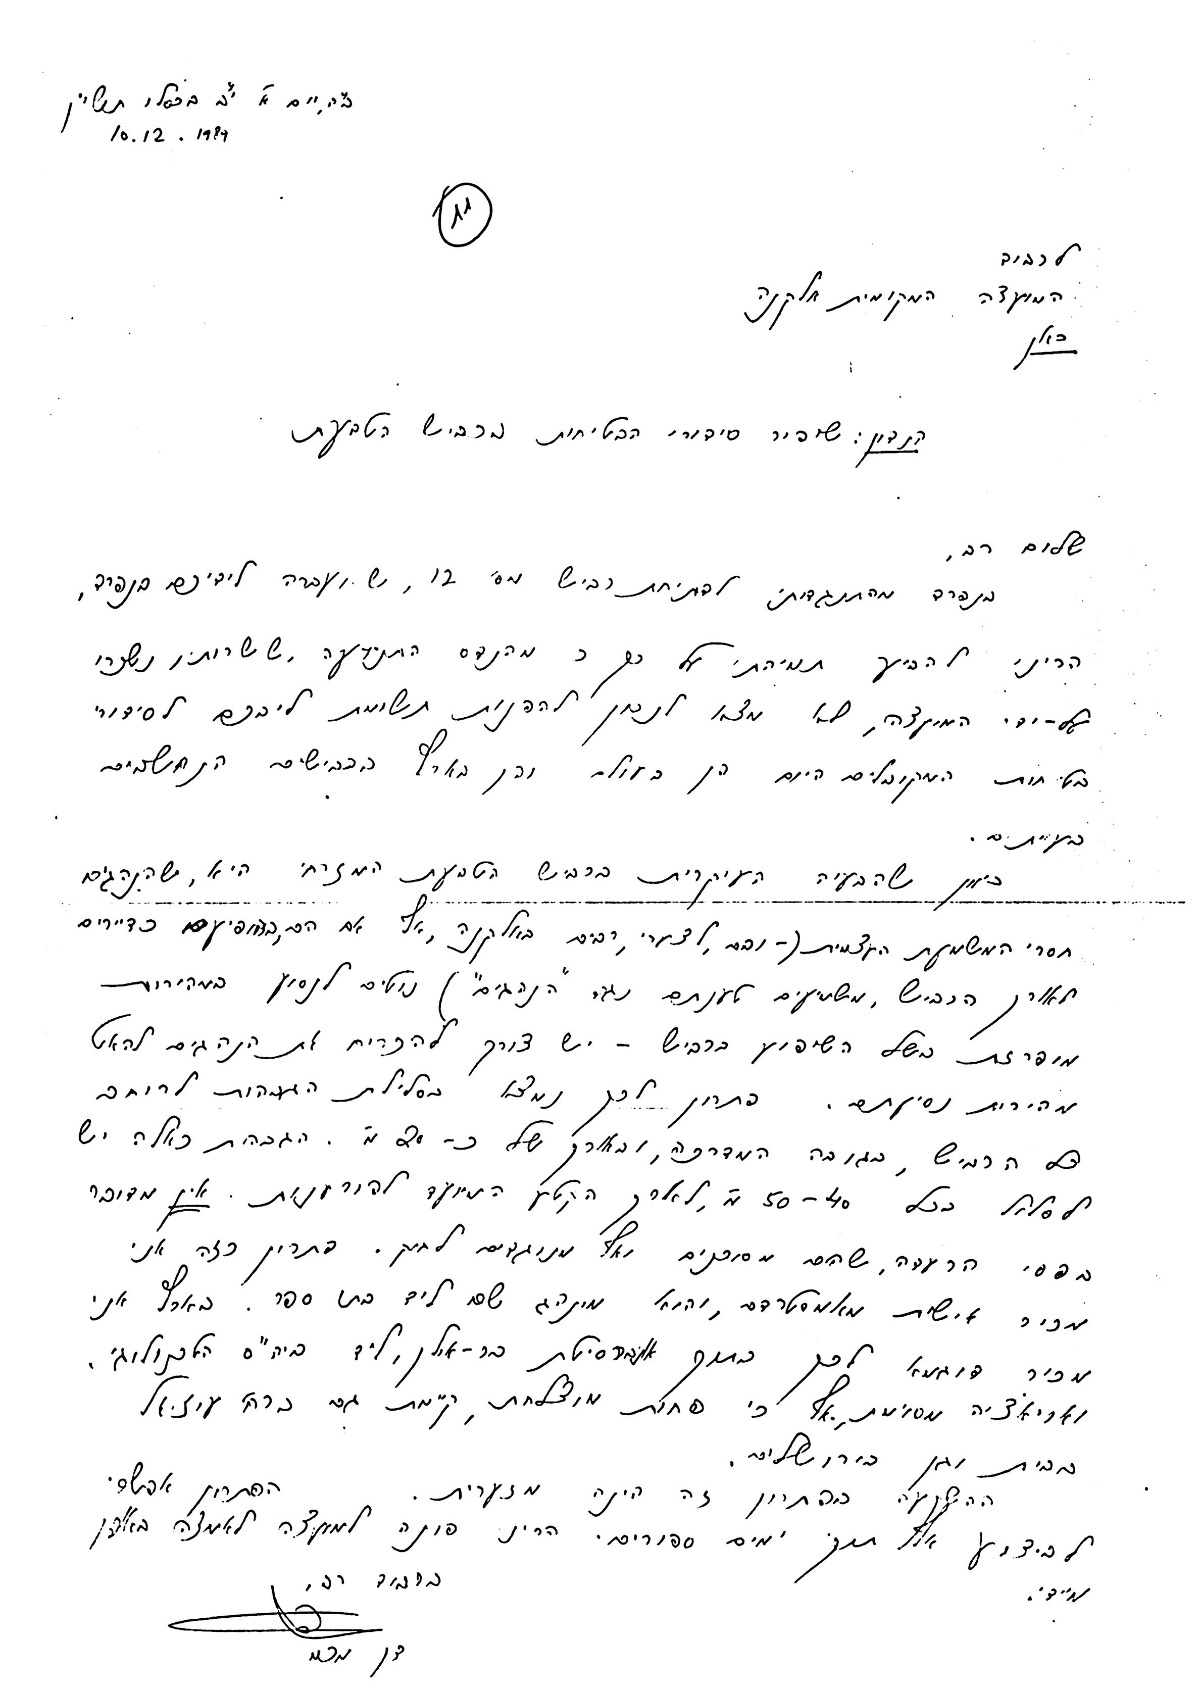 ב"ה, יום א' י"ב בכסלו תש"ן
10.12.1989
לכבוד
המועצה המקומית אלקנה
כאן
הנדון: שיפור סידורי הבטיחות בכביש הטבעת
שלום רב,
בנפרד מהתנגדותי לפתיחת כביש מס' 12, שיועברה לידיכם בנפרד,
הריני להביע תמיהתי על כך כי מהנדס התנועה, ששרותיו נשכרו
על-ידי המועצה, לא מצא לנכון להפנות תשומת ליבכם לסידורי
בטיחות המקובלים היום הן בעולם והן בארץ בכבישים הנחשבים
בעייתיים.
כיוון שהבעיה העיקרית בכביש הטבעת המזרחי היא, שהנהגים
חסרי המשמעת העצמית (-וגם, לצערי, רבים באלקנה, אף אם הם, בהופיעם כדיירים
לאורך הכביש, משמיעים טענתם נגד "הנהגים") נוטים לנסוע במהירות
מופרזת בשל השיפוע בכביש - יש צורך להכריח את הנהגים להאט
מהירות נסיעתם. פתרון לכך נמצא בסלילת הגבהות לרוחב
כל הכביש, בגובה המדרכה, ובאורך של כ- 20 מ'. הגבהות כאלה יש
לסלול בכל 40-50 מ', לאורך הקטע המיועד לפורענות. אין מדובר
בפסי הרעדה, שהם מסוכנים ואף מנוגדים לחוק. פתרון כזה אני
מכיר אישית מאמסטרדם, והוא מונהג שם ליד בתי ספר. בארץ אני
מכיר דוגמא לכך בתוך אוניברסיטת בר-אילן, ליד ביה"ס הטכנולוגי.
ואריאציה מסוימת, אף כי פחות מוצלחת, קיימת גם ברח' עוזיאל
בבית וגן בירושלים.
ההשקעה בפתרון זה הינה מזערית. הפתרון אפשרי
לביצוע אף תוך ימים ספורים. הריני פונה למועצה לאמצה באופן
מיידי.
בכבוד רב,
דן מכם